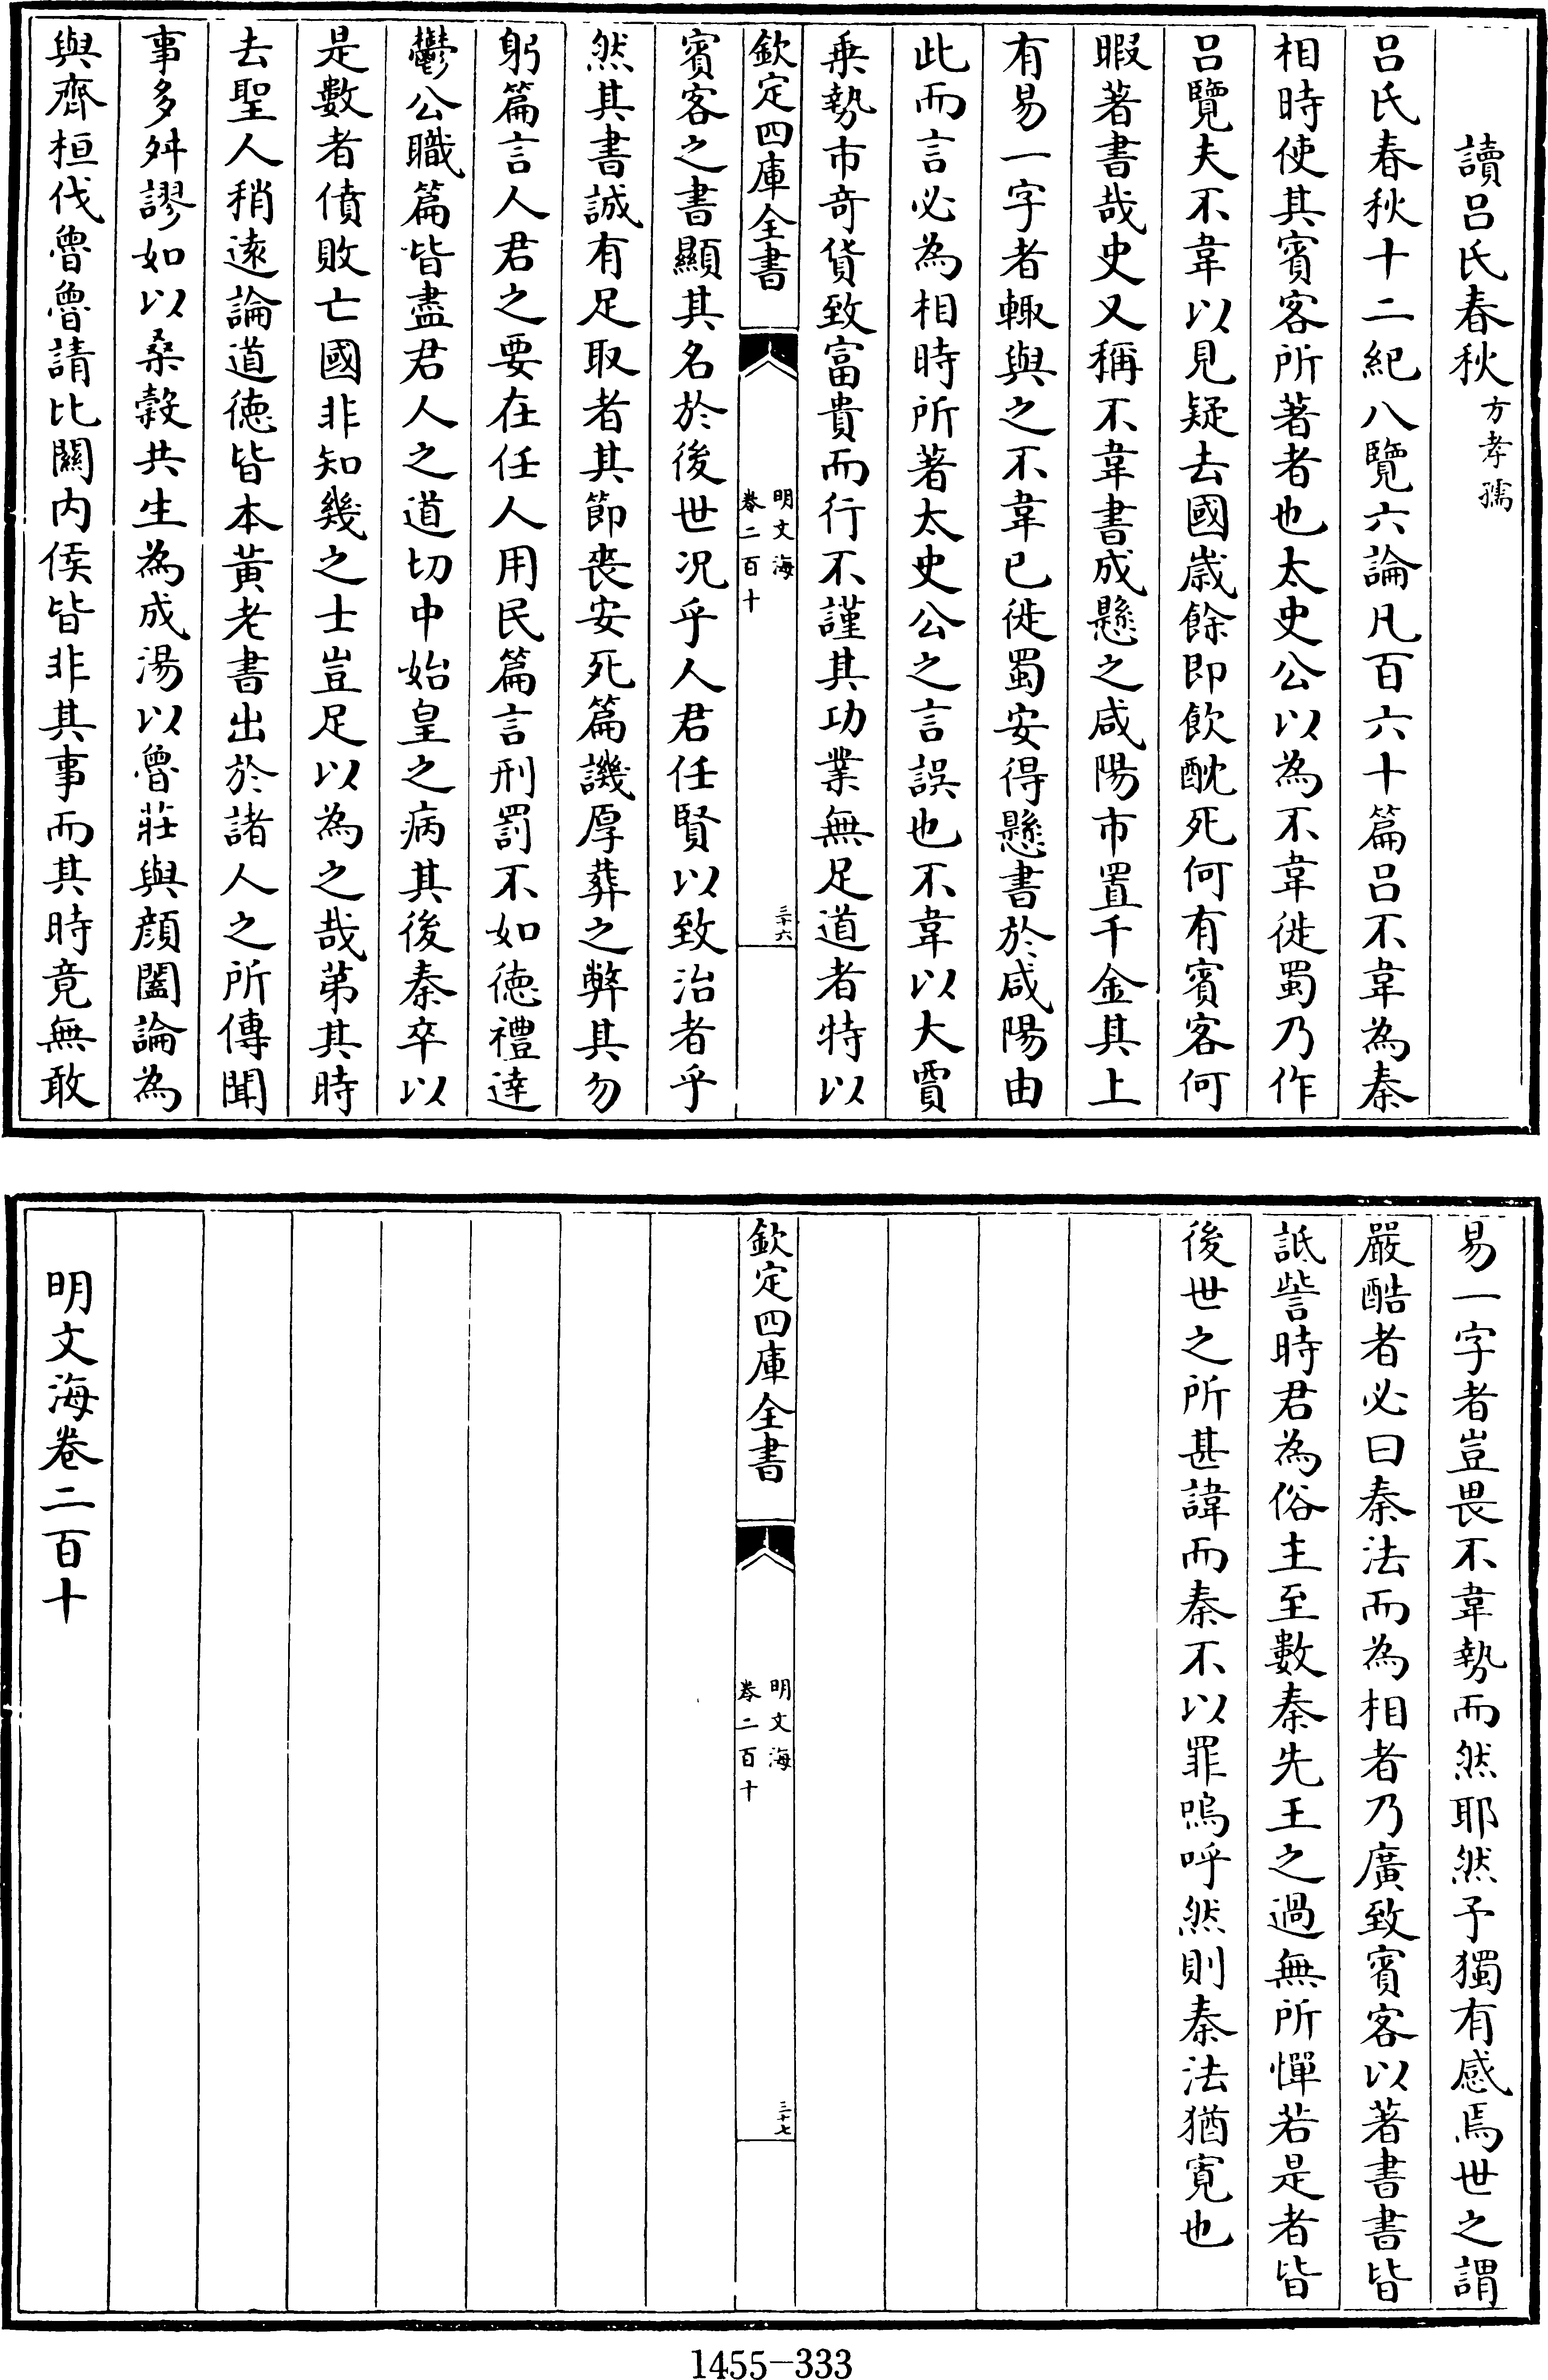 讀吕氏春秋方孝孺
吕氏春秋十二紀八覽六論凡百六十篇吕不韋為秦
相時使其賓客所著者也太史公以為不韋徙蜀乃作
吕覽夫不韋以見疑去國歲餘即飲酖死何有賓客何
暇著書哉史又稱不韋書成懸之咸陽市置千金其上
有易一字者輙與之不韋已徙蜀安得懸書於咸陽由
此而言必為相時所著太史公之言誤也不韋以大賈
乗勢市奇貨致富貴而行不謹其功業無足道者特以
欽定四庫全書
明文海
卷二百十
三十六
賓客之書顯其名於後世况乎人君任賢以致治者乎
然其書誠有足取者其節喪安死篇譏厚葬之弊其勿
躬篇言人君之要在任人用民篇言刑罰不如德禮達
鬱公職篇皆盡君人之道切中始皇之病其後秦卒以
是數者僨敗亡國非知幾之士豈足以為之哉第其時
去聖人稍逺論道德皆本黄老書出於諸人之所傳聞
事多舛謬如以桑榖共生為成湯以魯莊與顔闔論為
與齊桓伐魯魯請比關内侯皆非其事而其時竟無敢
易一字者豈畏不韋勢而然耶然予獨有感焉世之謂
嚴酷者必曰秦法而為相者乃廣致賓客以著書書皆
詆訾時君為俗主至數秦先王之過無所憚若是者皆
後世之所甚諱而秦不以罪嗚呼然則秦法猶寛也
欽定四庫全書
明文海
卷二百十
三十七
明文海卷二百十
1455-333